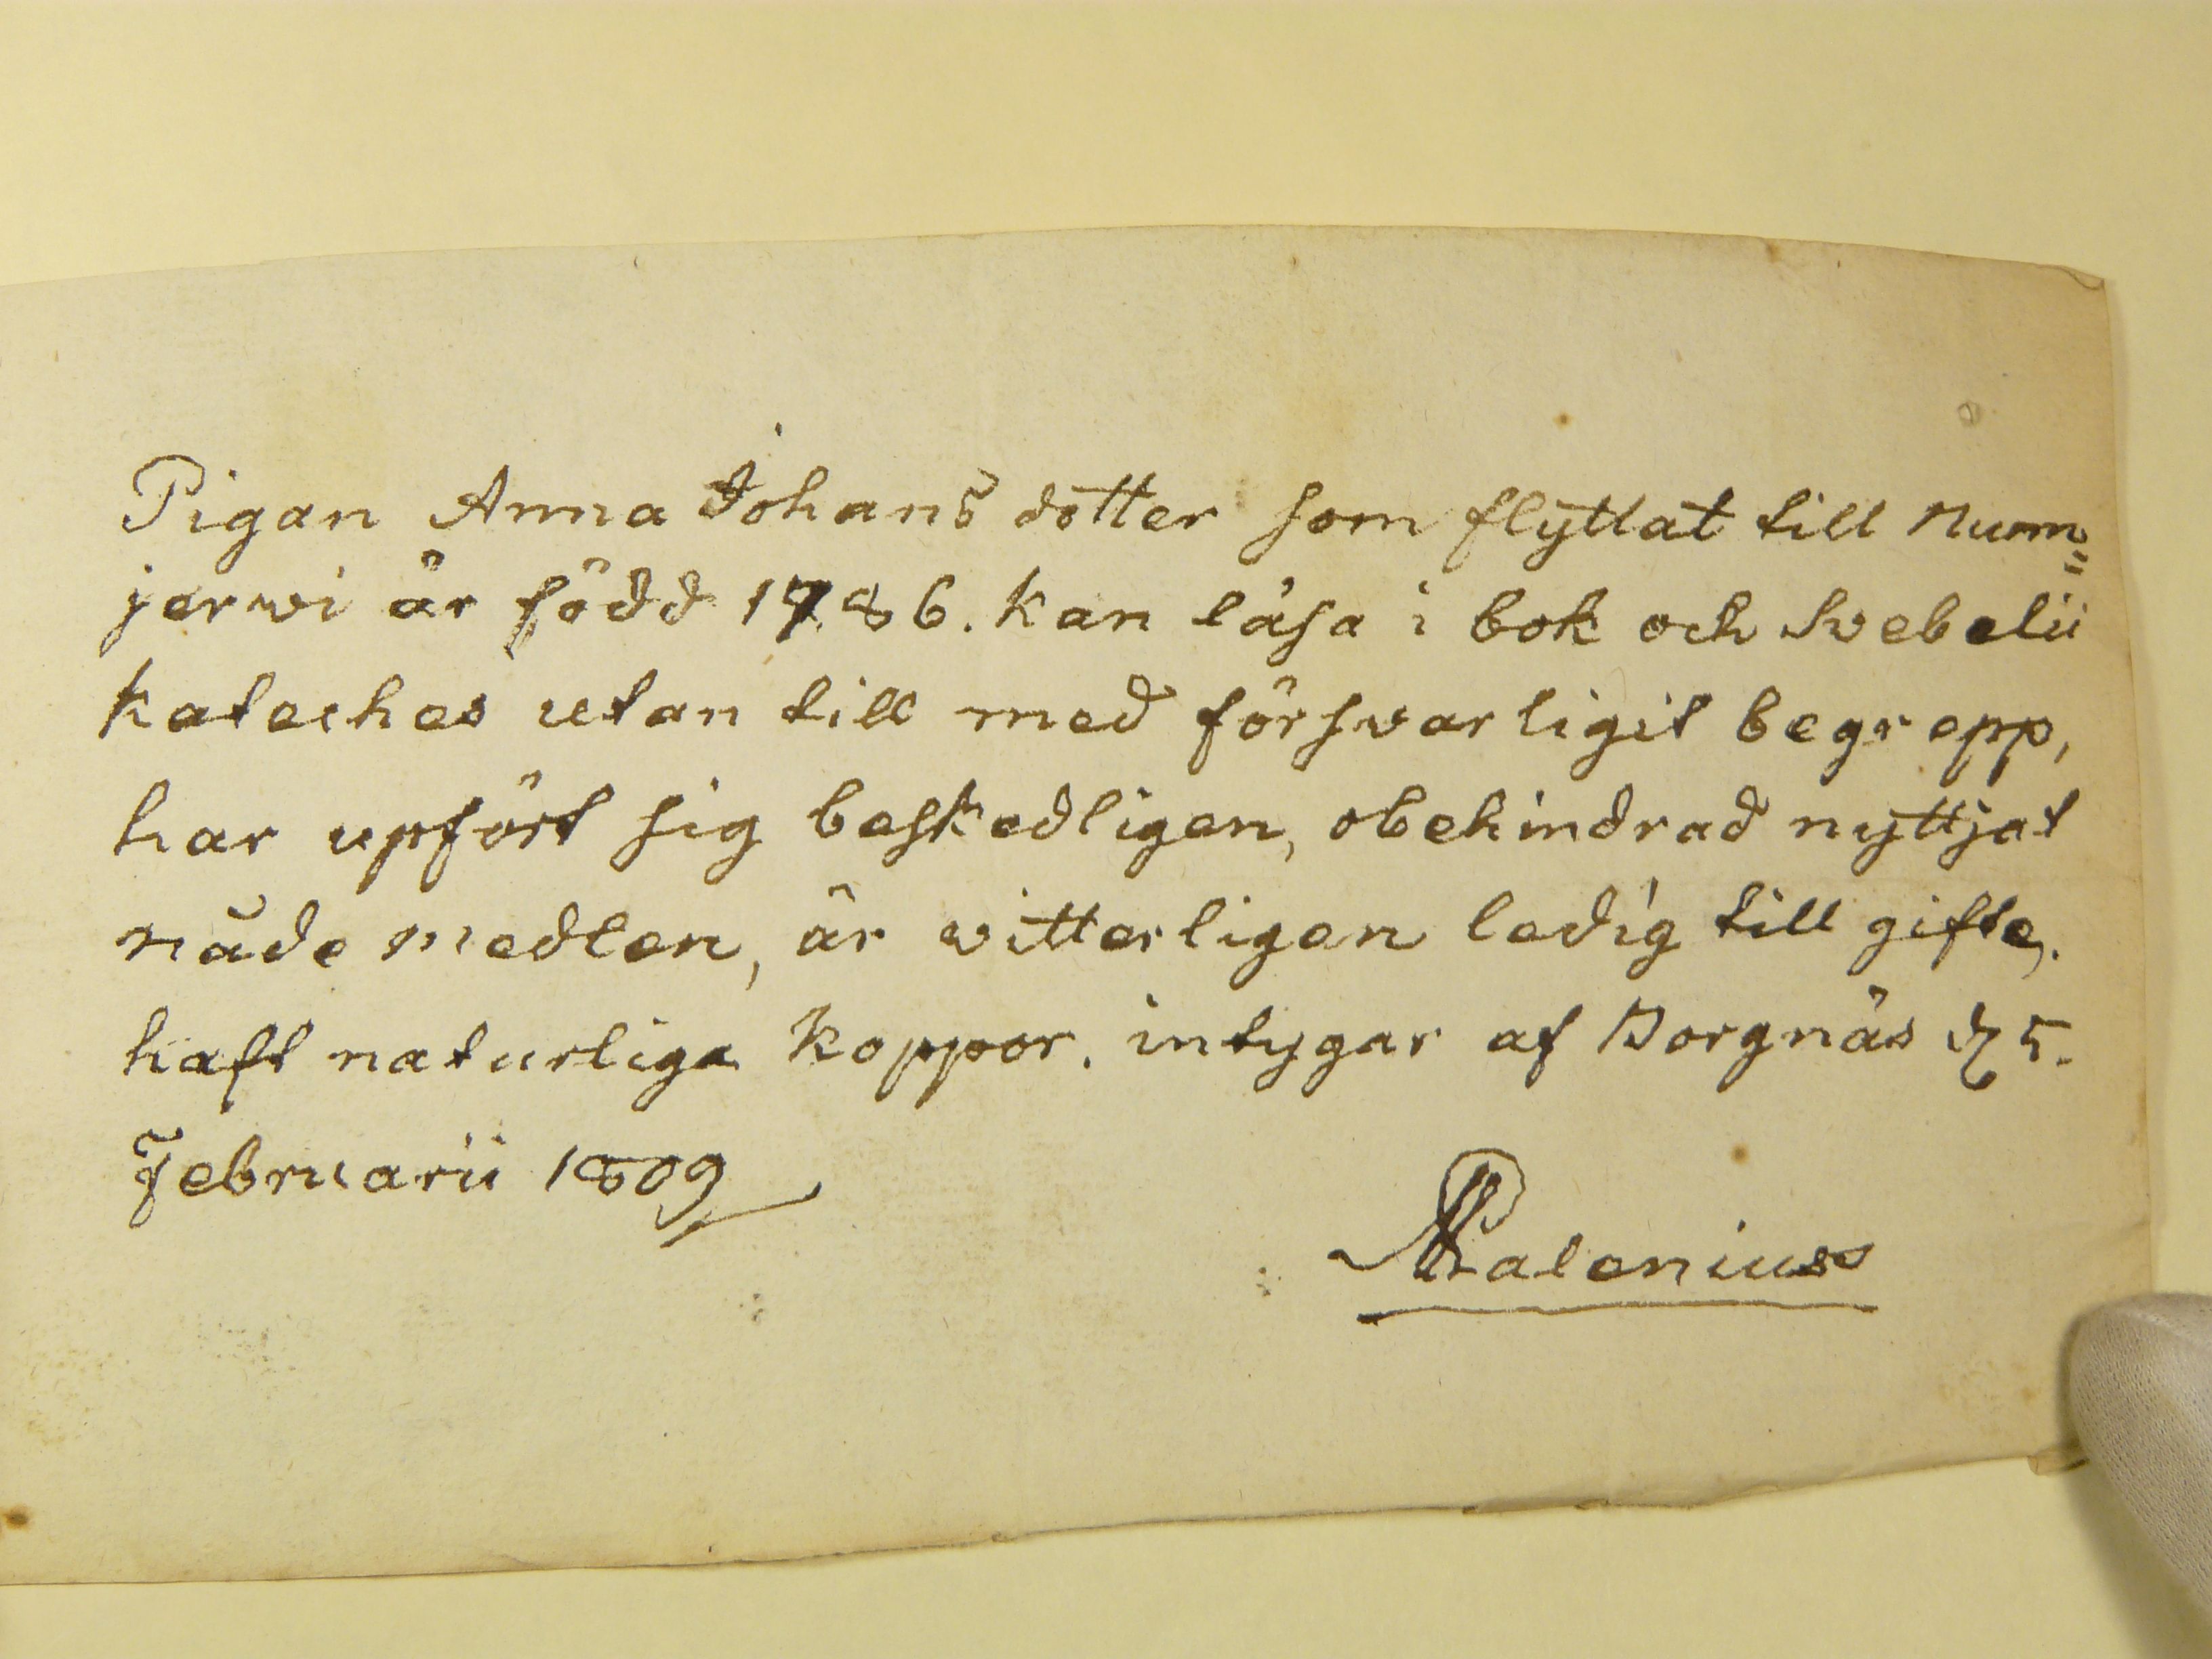 Pigan Anna Johans dotter som flyttat till Num=
jerwi är född 1786. kan läsa i bok och Svebelii
kateches utan till med försvarligit begrepp,
har upfört sig beskedligen, obehindrad nyttjat
nåde medlen, är vitterligen ledig till gifte,
haft naturliga koppor. intygar af Borgnäs d 5.
Februarii 1809
Palenius